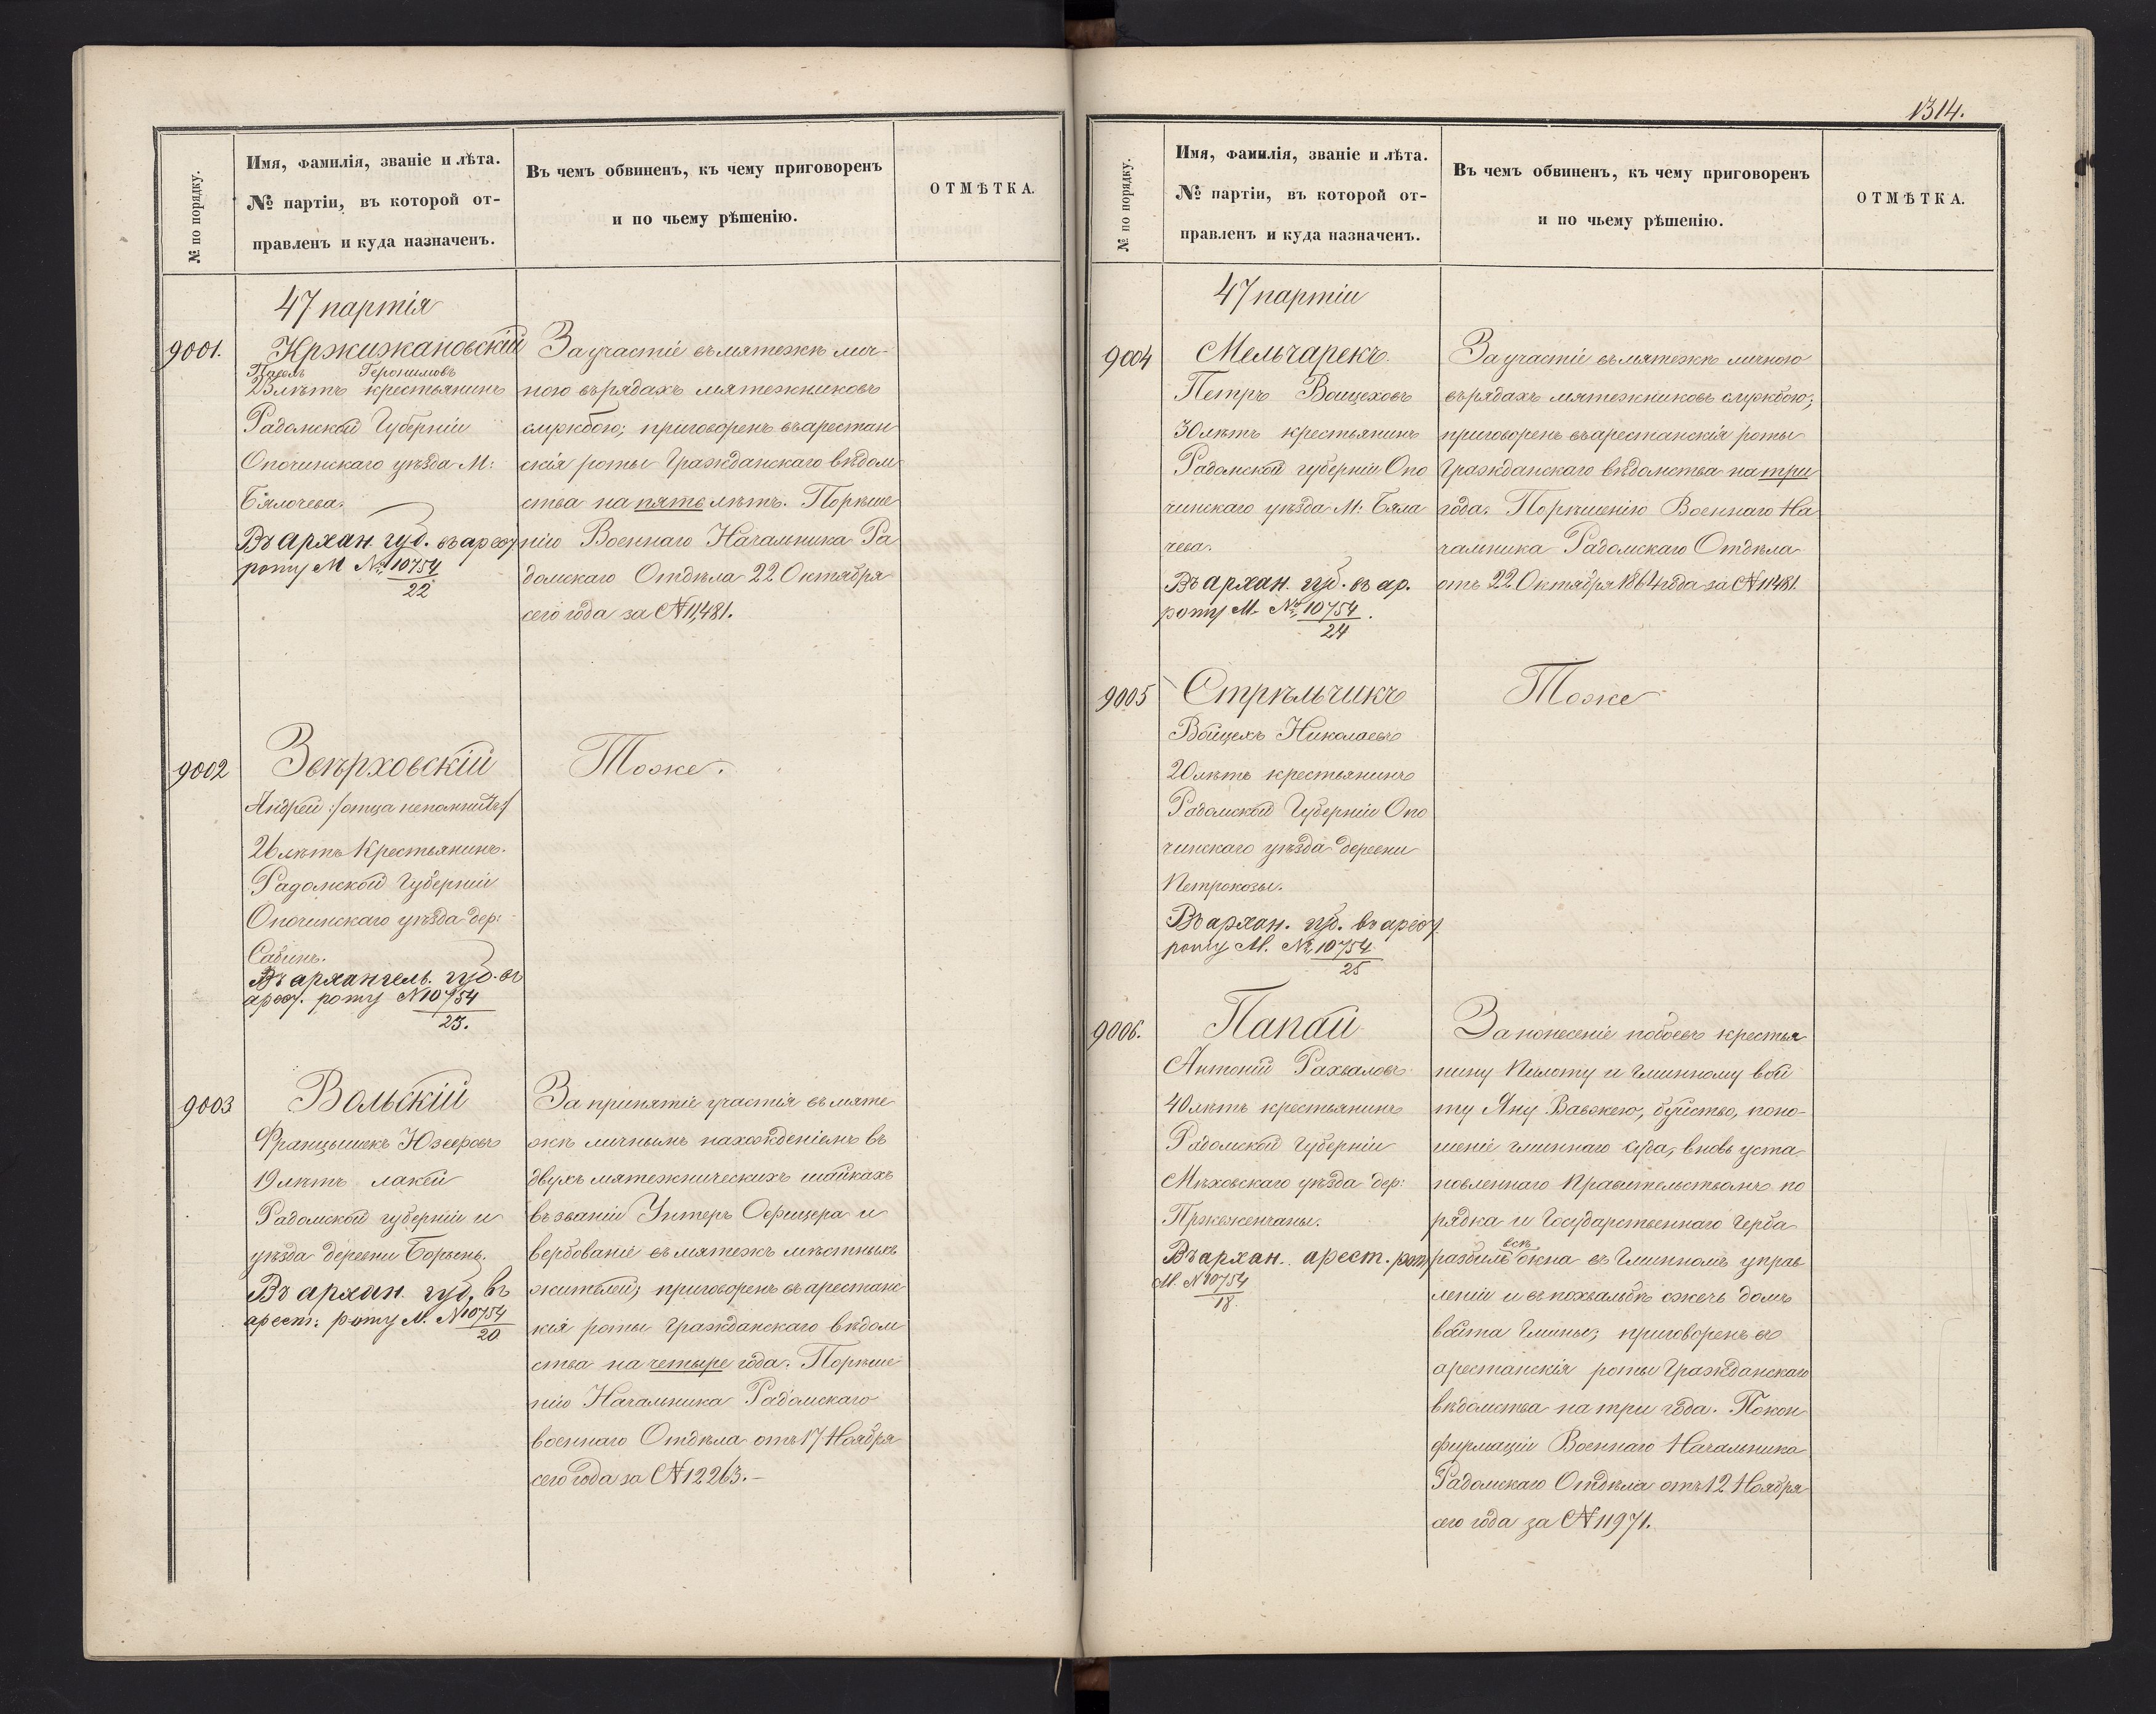 № по порядку.
Имя, фамилія, званіе и лѣта.
№ партіи, въ которой от-
правленъ и куда назначенъ.
Въ чемъ обвиненъ, къ чему приговоренъ
и по чьему рѣшенію.
ОТМѢТКА.
47 партія
9001.
Кржижановскій
Павелъ Геронимовъ
23 лѣтъ крестьянинъ
Радомской Губерніи
Опочинскаго уѣзда М:
Бялочева.
Въ архан. губ. въ арест
роту М №10754
22
За участіе въ мятежѣ лич-
ною въ рядахъ мятежниковъ
службою; приговоренъ въ арестан
скія роты Гражданскаго вѣдом
ства на пять лѣтъ. По рѣше
нію Военнаго Начальника Ра
домскаго Отдѣла 22 Октября
сего года за №11,481.
9002
Звѣрховскій
Андрей :/отца непомнитъ/
26 лѣтъ Крестьянинъ.
Радомской Губерніи
Опочинскаго уѣзда дер:
Сабинъ.
Въ архангель. губ. въ
арест. роту №10754
23.
Тоже.
9003
Вольскій
Францышекъ Юзефовъ
19 лѣтъ лакей
Радомской губерніи и
уѣзда деревни
Въ архан. губ. въ
арест: роту М. №10754
20
За принятіе участія въ мяте
жѣ личнымъ нахожденіемъ въ
двухъ мятежническихъ шайкахъ
въ званіи Унтеръ Офицера и
вербованіе въ мятежъ мѣстныхъ
жителей; приговоренъ въ арестанс
кія роты Гражданскаго вѣдом
ства на четыре года. По рѣше
нію Начальника Радомскаго
военнаго Отдѣла отъ 17 Ноября
сего года за №12263.-
1314.
№ по порядку.
Имя, фамилія, званіе и лѣта.
№ партіи, въ которой от-
правленъ и куда назначенъ.
Въ чемъ обвиненъ, къ чему приговоренъ
и по чьему рѣшенію.
ОТМѢТКА.
47 партіи
9004
Мельчарекъ.
Петръ Воицеховъ
30 лѣтъ крестьянинъ
Радомской губерніи Опо
чинскаго уѣзда М: Бяла
чева.
Въ архан. губ. въ ар.
роту М. №10754.
24
За участіе въ мятежѣ личною
въ рядахъ мятежниковъ службою;
приговоренъ въ арестанскія роты
Гражданскаго вѣдомства на три
года. По рѣшенію Военнаго На
чальника Радомскаго Отдѣла
отъ 22 Октября 1864 года за №11481.
9005
Стрѣльчикъ
Войцехъ Николаевъ
20 лѣтъ крестьянинъ
Радомской Губерніи Опо
чинскаго уѣзда деревни
Петрокозы.
Въ архан. губ. въ арест
роту М. №10754
25
Тоже
9006.
Папай
Антоній Рахваловъ
40 лѣтъ крестьянинъ
Радомской Губерніи
Мѣховскаго уѣзда дер:
Въ архан. арест. рот
М. №10754
18.
За нонесеніе побоевъ крестья
нину Пилоту и гминному вой
ту Яну Вавжею, буйство, поно-
шеніе гминнаго суда, вновь уста
новленнаго Правительствомъ по
рядка и Государственнаго Герба
разбилъ всѣ окна въ Гминномъ управ
леніи и въ похвальбѣ сжечь домъ
войта Гмины; приговоренъ въ
арестанскія роты Гражданскаго
вѣдомства на три года. По кон
фирмаціи Военнаго Начальника
Радомскаго Отдѣла отъ 12 Ноября
сего года за №11971.